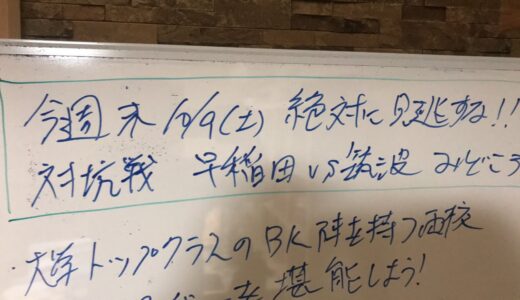 今週末 10/9(土) 絶対に見逃すな!!
対抗戦 早稲田 vs 筑波 みどころ
・大学トップクラスのBK陣を持つ両校
を堪能しよう!